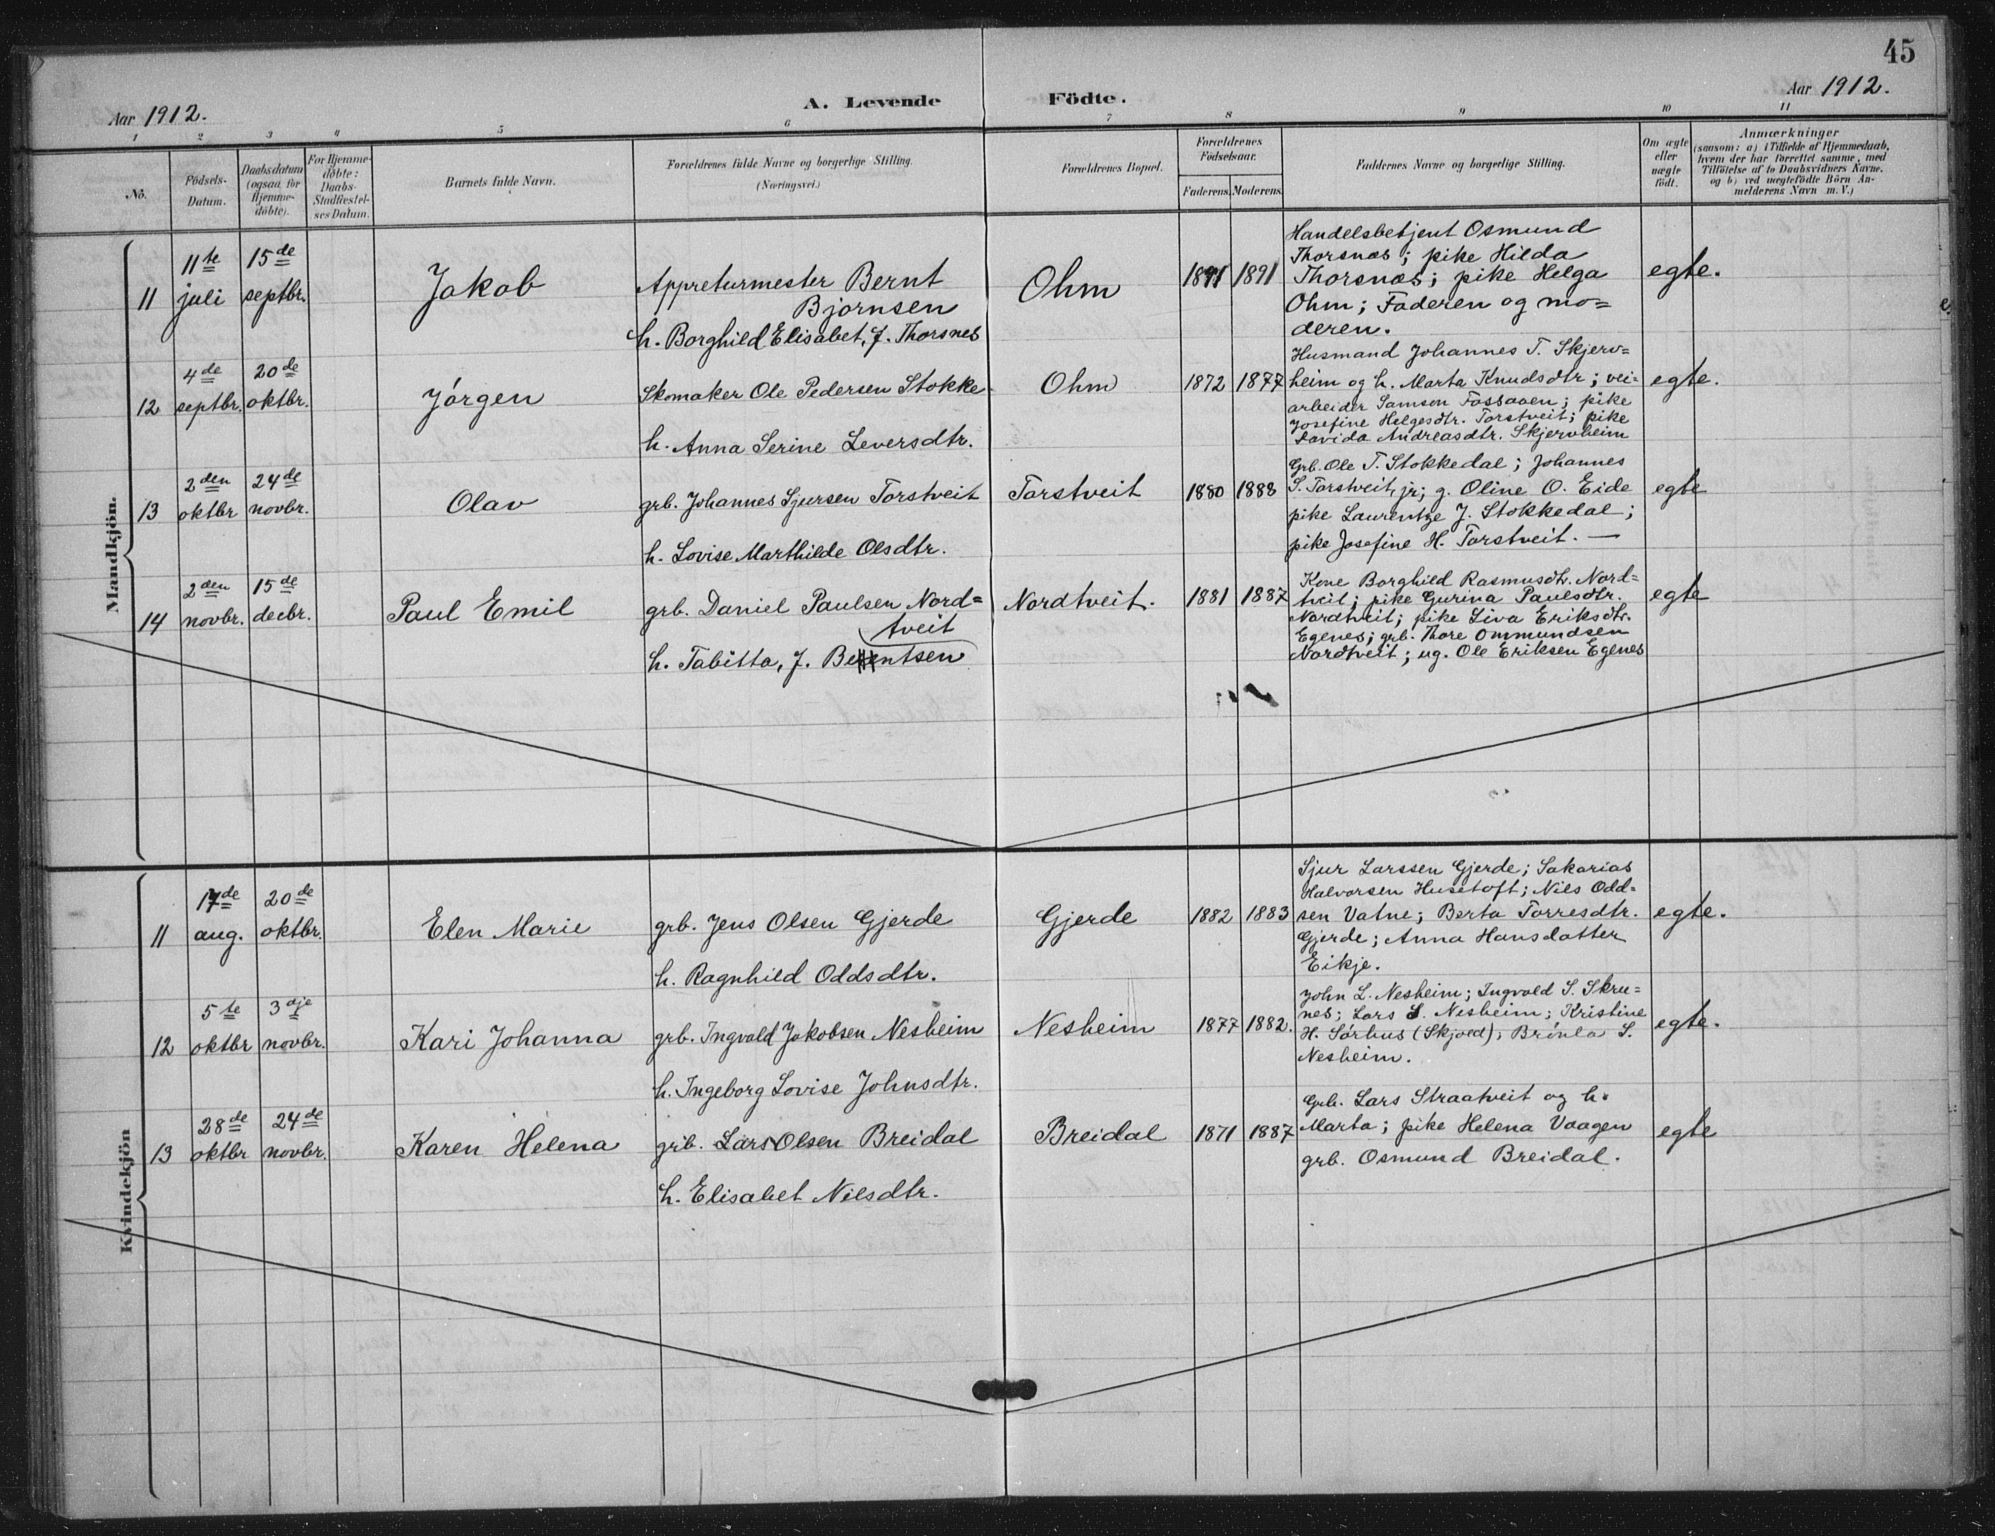 45
Aar 1912.
A. Levende Födte.
Aar 1912.
1 2 3 4 5 6 7 8 9 10 11
No.
Födsels-
Datum.
Daabsdatum
(ogsaa for
Hjemme-
döbte).
For Hjemme-
döbte:
Daabs-
Stadfæstel-
ses Datum.
Barnets fulde Navn.
Forældrenes fulde Navne og borgerlige Stilling.
(Næringsvei.)
Forældrenes Bopæl.
Forældrenes
Födselsaar.
Faderens. Moderens.
Faddernes Navne og borgerlige Stilling.
Om ægte
eller
uægte
födt.
Anmærkninger
(saasom: a) i Tilfælde af Hjemmedaab,
hvem der har forrettet samme, med
Tilföielse af to Daabsvidners Navne.
og b) ved uægtefödte Börn An-
melderens Navn m. V.)
Mandkjön.
11
11te
juli
15de
septbr.
Jakob
Appreturmester Bernt
Bjørnsen
h. Borghild Elisabet, f. Thorsnes
Ohm
1891
Handelsbetjent Osmund
Thorsnæs; pike Hilda
Thorsnæs; pike Helga
Ohm; Faderen og mo=
deren.
egte.
12
4de
septbr.
20de
oktbr.
Jørgen
Skomaker Ole Pedersen Stokke
h. Anna Serine Seversdtr.
Ohm
1872 1877
Husmand Johannes T. Skjerv=
heim og h. Marta Knudsdtr; vei=
arbeider Samson Fossaaen; pike
Josefine Helgesdtr. Torstveit; pike
Davida Andreasdtr. Skjervheim
egte.
13
2den
oktbr
24de
novbr.
Olav
grb. Johannes Sjursen Torstveit
h. Lovise Marthilde Olsdtr.
Torstveit
1880 1888
Grb. Ole T. Stokkedal; Johannes
S. Torstveit, jr; g. Oline O. Eide
pike Laurentze J. Stokkedal;
pike Josefine H. Torstveit. —
egte
14
2den
novbr.
15de
decbr.
Paul Emil
grb. Daniel Paulsen Nord=
tveit
h. Tabitta, f. Berentsen
Nordtveit.
1881 1887
Kone Borghild Rasmusdtr. Nord=
tveit; pike Gurina Paulsdtr.
Nordtveit; pike Liva Eriksdtr.
Egenes; grb. Thore Ommundsen
Nordtveit; ug. Ole Eriksen Egenes
egte
Kvindekjön
11
17de
aug.
20de
oktbr.
Elen Marie
grb. Jens Olsen Gjerde
h. Ragnhild Oddsdtr.
Gjerde
1882 1883
Sjur Larssen Gjerde; Sakarias
Halvorsen Husetoft; Nils Odd=
sen Vatne; Berta Torresdtr.
Gjerde; Anna Hansdatter
Eikje.
egte.
12
5te
oktbr
3dje
novbr.
Kari Johanna
grb. Ingvald Jakobsen Nesheim
h. Ingeborg Lovise Johnsdtr.
Nesheim
1877 1882.
John L. Nesheim; Ingvald S. Skru=
nes; Lars S. Nesheim; Kristine
H. Sørhus (Skjold); Brønla S.
Nesheim.
egte.
13
28de
oktbr
24de
novbr.
Karen Helena
grb. Lars Olsen Breidal
h. Elisabet Nilsdtr.
Breidal
1871 1887
Grb. Lars Straatveit og h.
Marta; pike Helena Vaagen
grb. Osmund Breidal.
egte